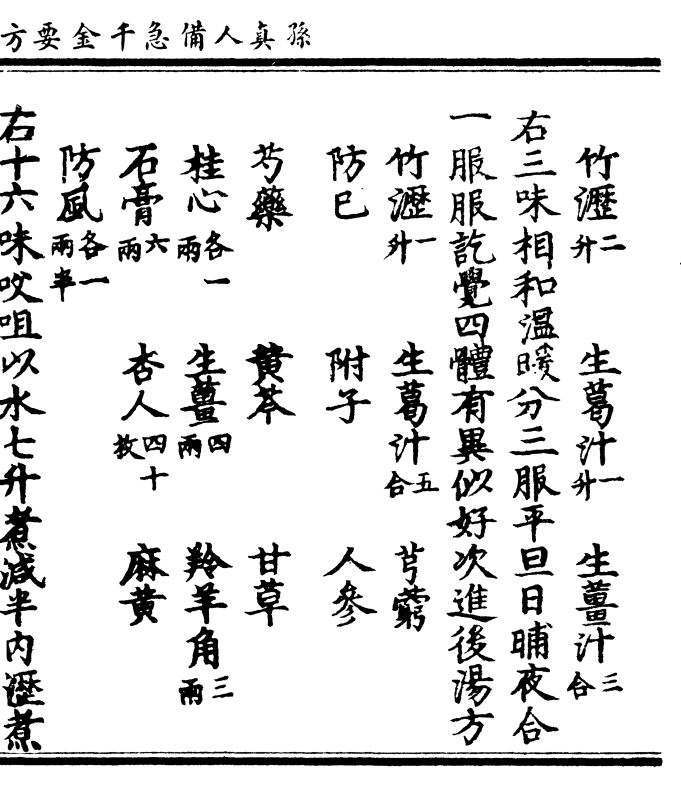 孫真人備急千金要方
竹瀝二升 生葛汁一升 生薑汁三合
右三味相和溫暖分三服平旦日晡夜合
一服服訖覺四體有異似好次進後湯方
竹瀝一升 生葛汁五合 芎藭
防巳 附子 人參
芍藥 黄芩 甘草
桂心各一兩 生薑四兩 羚羊角三兩
石膏六兩 杏人四十枚 麻黄
防風各一兩半
右十六味㕮咀以水七升煮減半内瀝煮